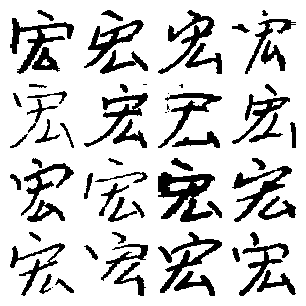 宏宏宏宏
宏宏宏宏
宏宏宏宏
宏宏宏宏